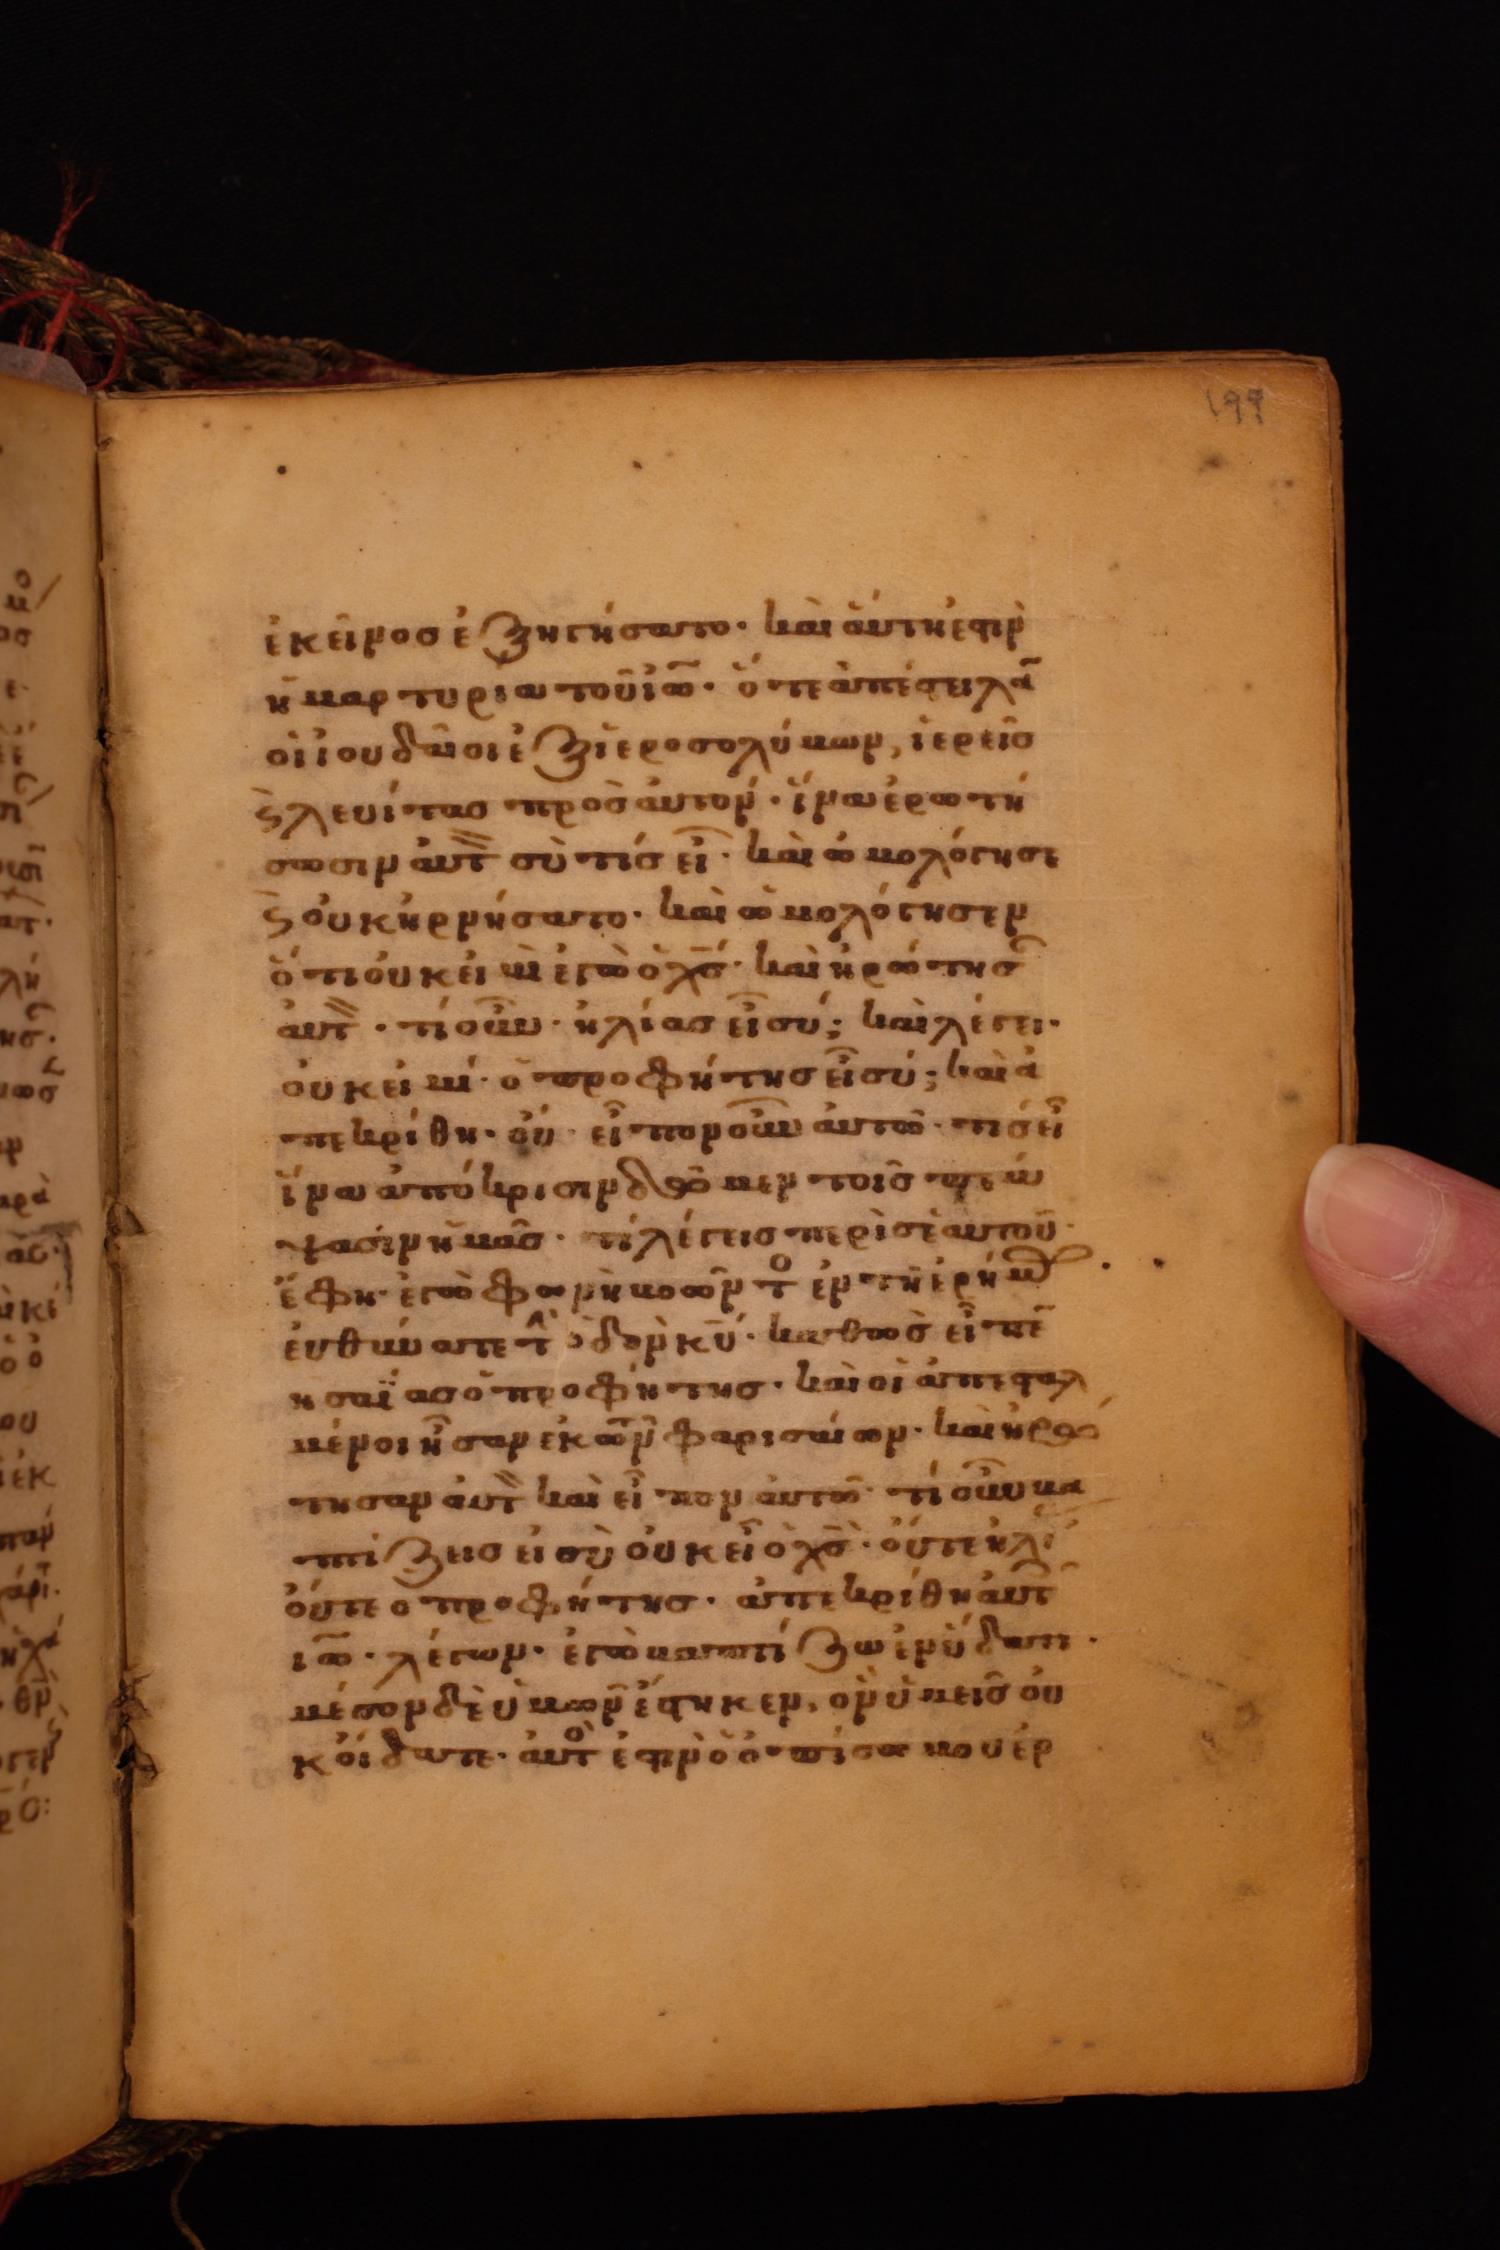 199
ἐκεῖνος ἐξηγήσατο· καὶ ἅυτη ἐστὶν
ἡ μαρτυρία τοῦ ἰω̅· ὅτε ἀπέστειλα̅
οἱ ἰουδαῖοι ἐξ ἱεροσολύμων, ἱερεῖς
ϛ λευίτας πρὸς ἀυτόν· ἵνα ἐρωτή
σωσιν ἀυτ̅ σὺ τίς εἶ· καὶ ὡμολόγησε
ϛ οὐκ ἠρνήσατο· καὶ ὡμολόγησεν
ὅτι οὐκ εἰμὶ ἐγὼ ὁ χ̅ς̅· καὶ ἠρώτησ
ἀυτ̅· τί οὖν· ἠλίας εἶ σύ; καὶ λέγει·
οὐκ εἰμί· ὁ προφήτης εἶ σύ; καὶ ἀ
πεκρίθη· οὔ· εἶπον οὖν ἀυτῶ· τίς εἶ
ἵνα ἀπόκρισιν δῶμεν τοῖς πέμ
ψασιν ἡμᾶς· τί λέγεις περὶ σεαυτοῦ·
ἔφη· ἐγὼ φωνὴ βοῶν τ ἐν τῆ ἐρήμ
ἐυθύνατε τ ὁδὸν κ̅υ̅· καθὼς εἶπε
ησαΐας ὁ προφήτης· καὶ οἱ ἀπεσταλ
μένοι ἦσαν ἐκ τῶν φαρισαίων· καὶ ἠρώ
τησαν ἀυτ̅ καὶ εἶπον ἀυτῶ· τί οὖν βα
πτίζεις εἰ σὺ οὐκ εἶ ὁ χ̅ς̅· ὄυτε ἠλί
ὄυτε ὁ προφήτης· ἀπεκρίθη ἀυτ
ιω̅· λέγων· ἐγὼ βαπτίζω ἐν ὕδατι·
μέσον δὲ ὑμῶν ἕστηκεν, ὃν ὑμεῖς οὐ
κ ὄιδατε· ἀυτ ἐστὶν ὁ ὀπίσω μου ἐρ